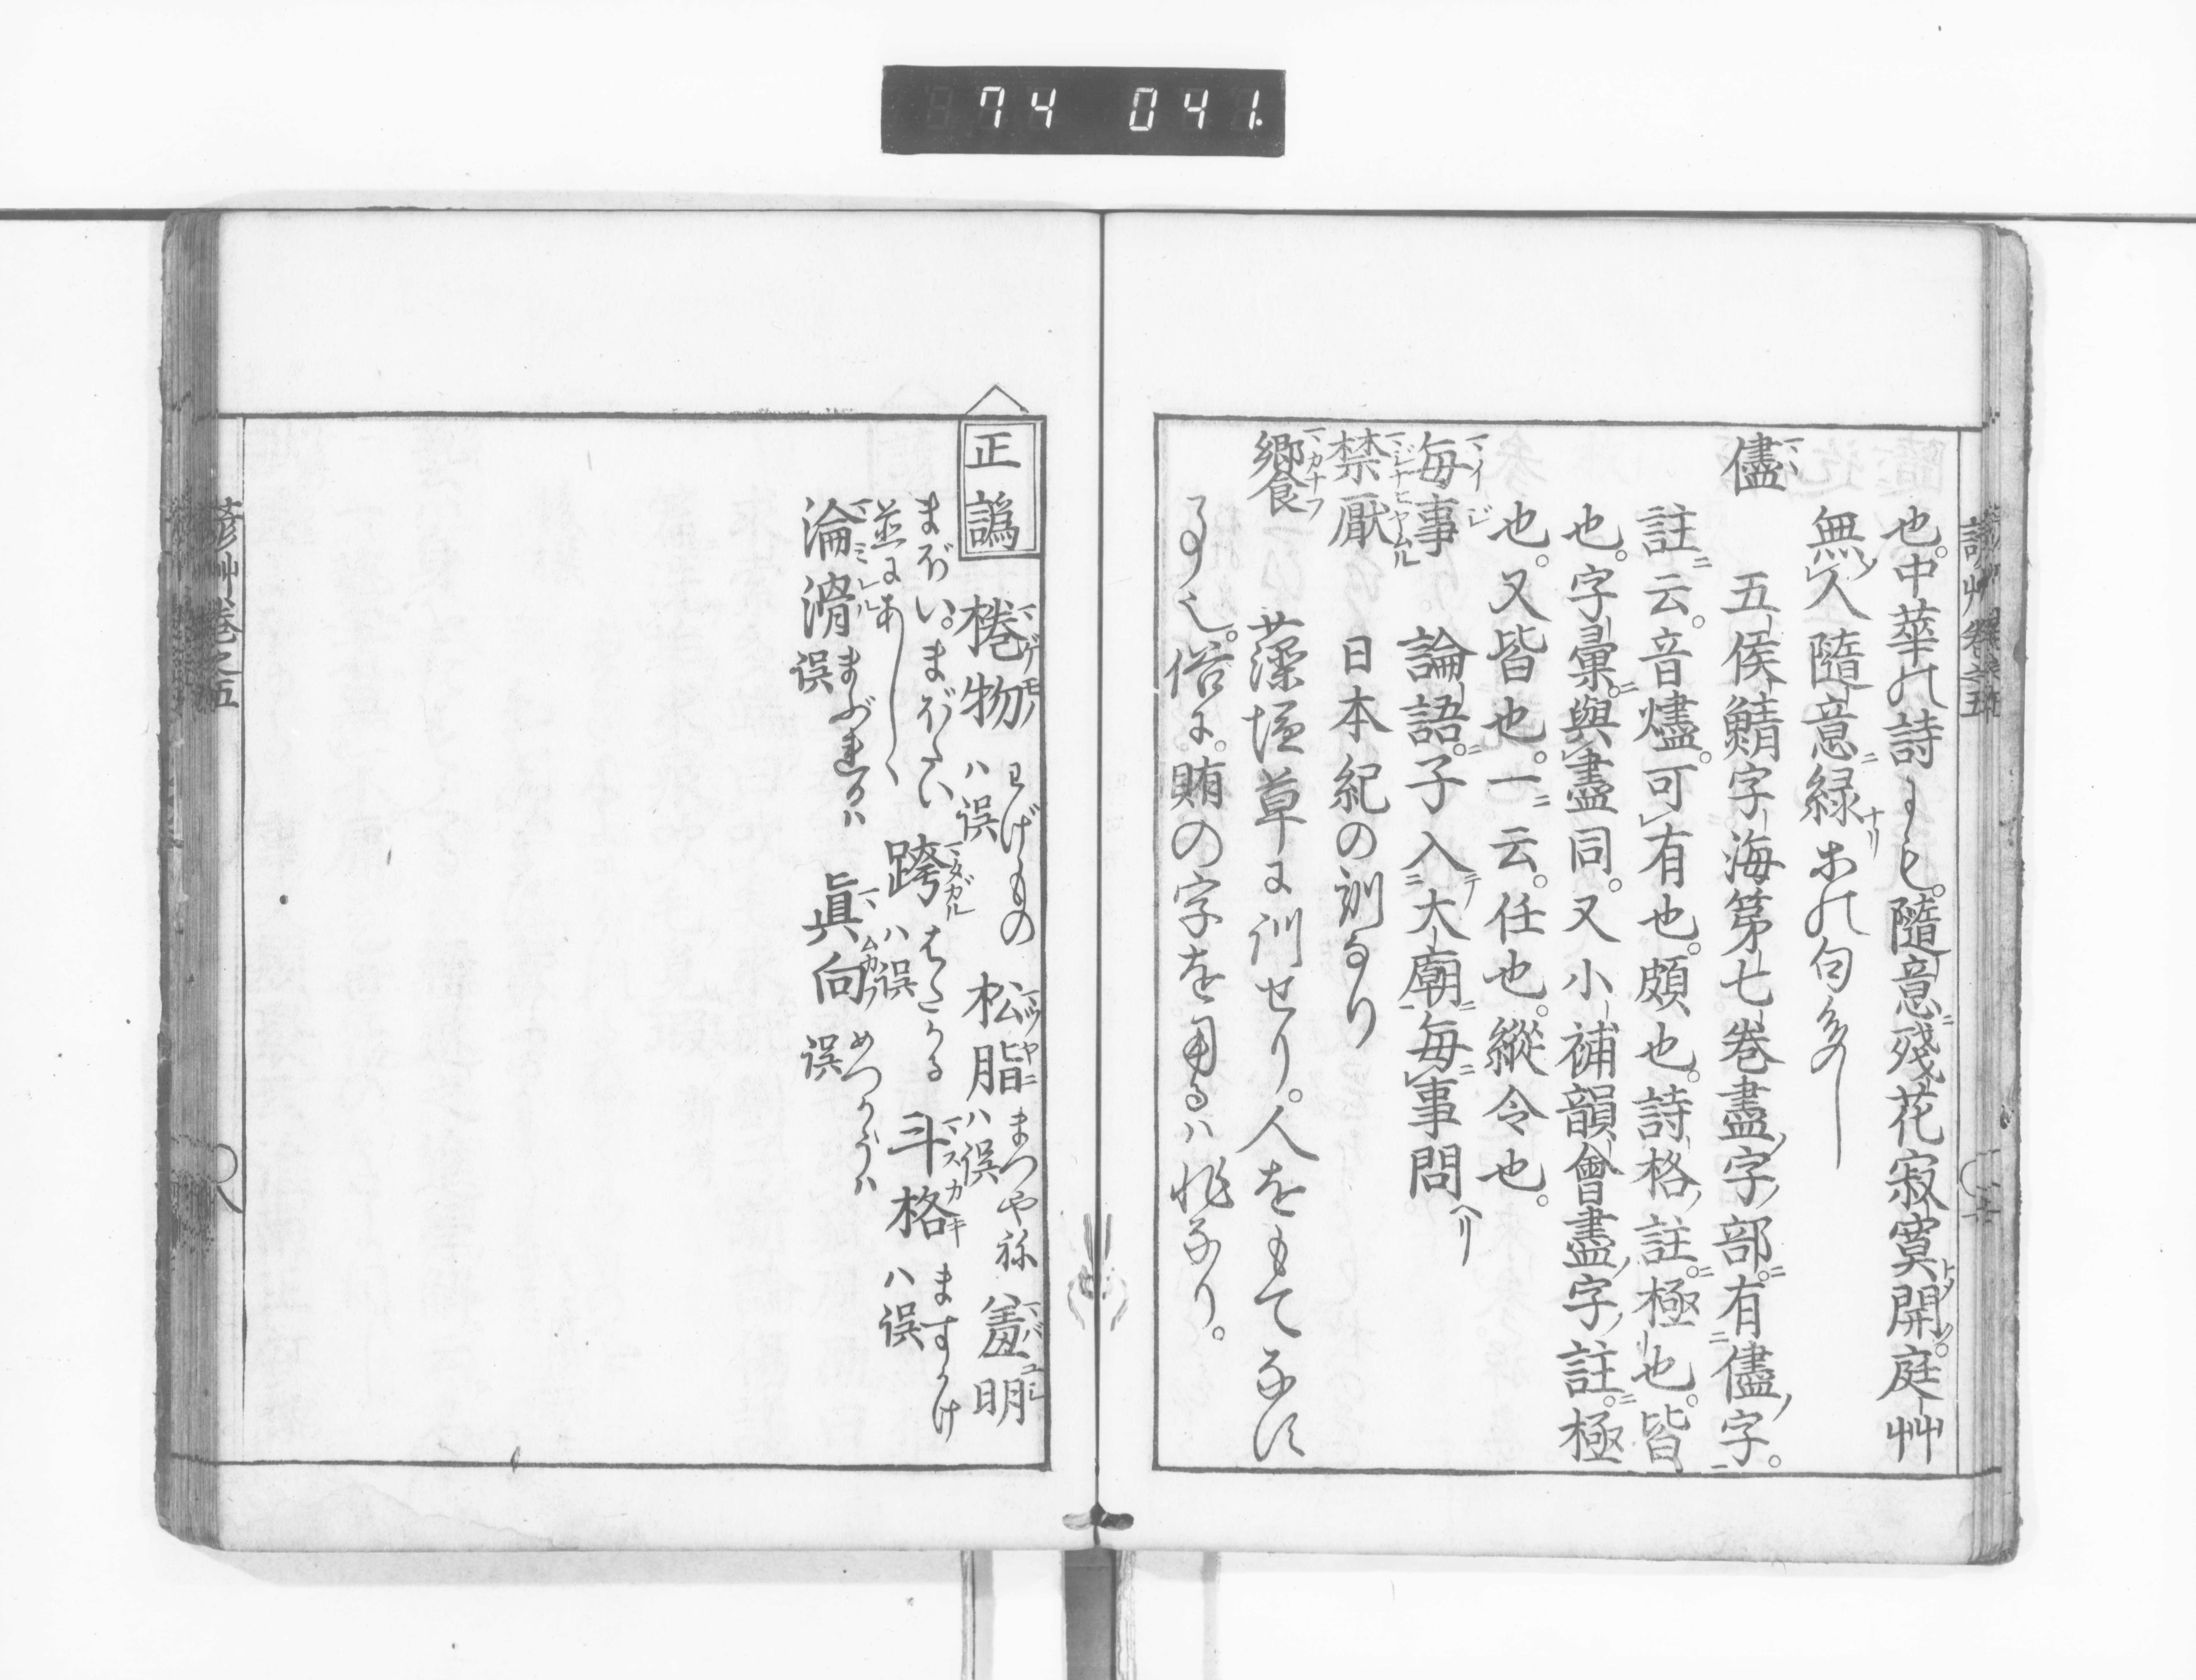 74 041.
也。中華の詩にも。隨意殘花寂寞開。庭艸
無人隨意緑ホの句多し
儘 五侯鯖字海第七巻盡字部。有儘字。
註云。音燼。可有也。頗也。詩格註。極也。皆
也。字彙。與盡同。又小補韻會盡字註。極
也。又皆也。一云。任也。縱令也。
毎事 論語。子入大廟毎事問
禁厭 日本紀の訓なり
饗 藻塩草に訓せり。人をもてなす
事也。俗に。賄の字を用るハ非なり。
正譌
棬物 わげもの ハ誤 松脂 まつやね ハ誤 羞明
まぼい。まぼたい 並にあし〱 跨 またかる ハ誤 斗格 ますかけ ハ誤
淪滑 まぶれるハ誤 眞向 めつかうハ誤
卷之五